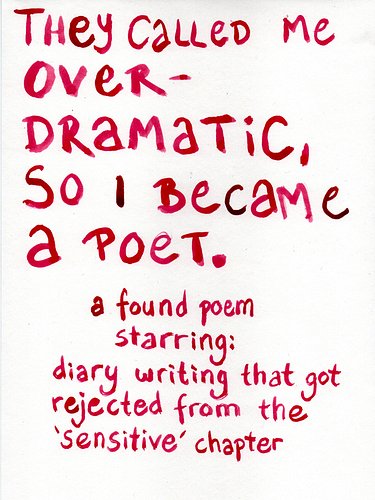 THEY CALLED ME
OVER-
DRAMATiC,
SO I BECAME
a POET.
a found poem
starring:
diary writing that got
rejected from the
'sensitive' chapter